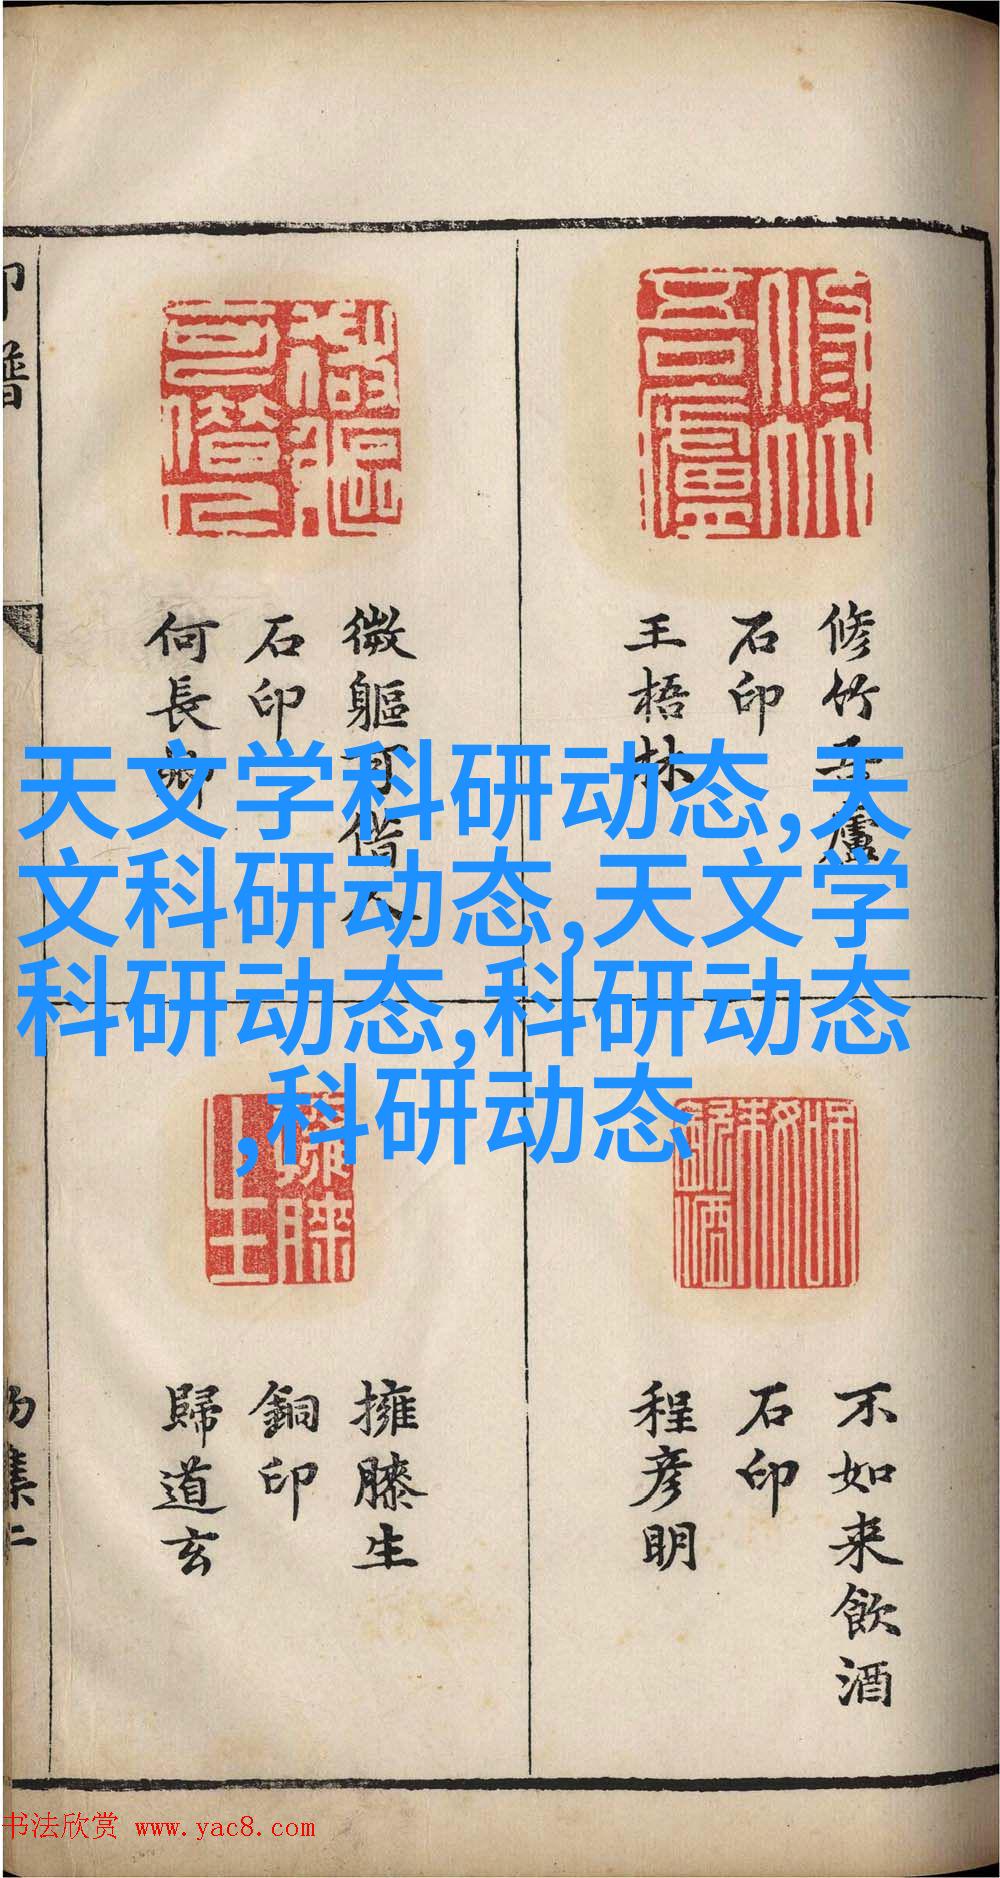 修竹吾廬
石印
王梧林
微軀可借人
石印
何長卿
天文学科研动态,天
文科研动态,天文学
科研动态,科研动态
,科研动态
不如来飲酒
石印
程彦明
擁膝生
銅印
歸道玄
印譜
书法欣赏 www.yac8.com